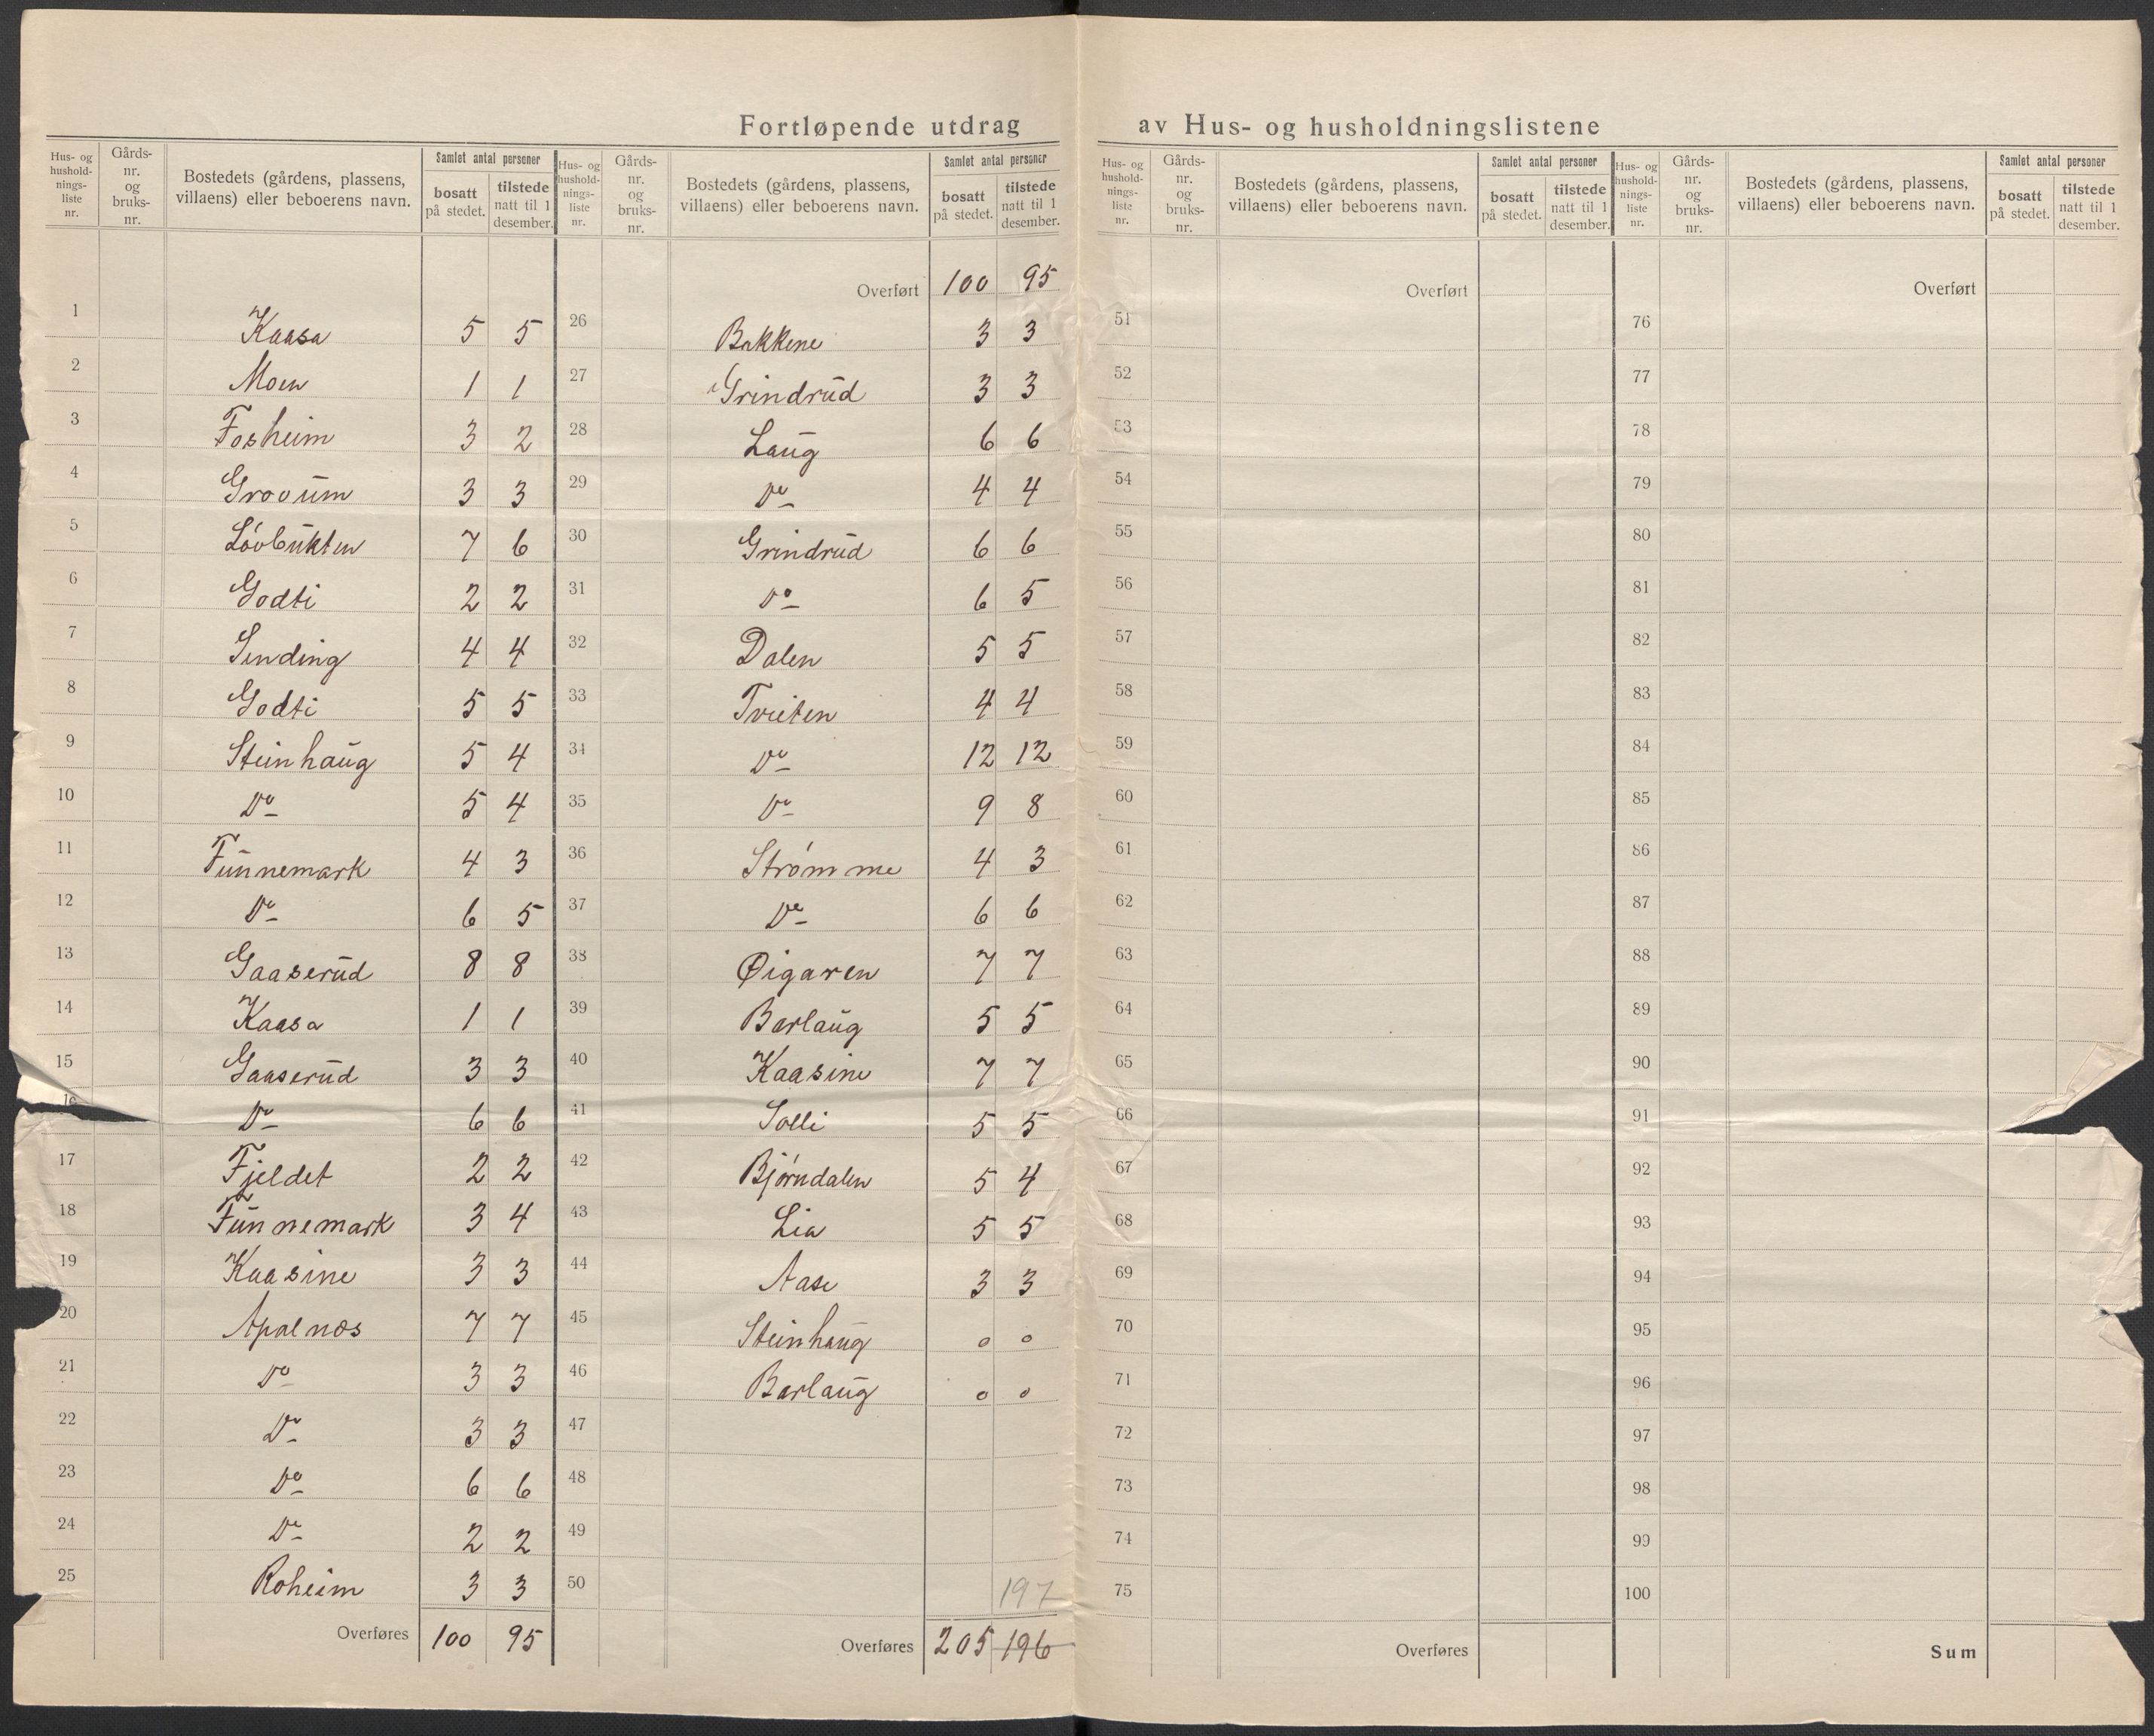 Fortløpende utdrag av Hus- og husholdningslistene
Hus- og hushold-nings-liste nr. Gårds-nr. og bruks-nr. Bostedets (gårdens, plassens, villaens) eller beboerens navn. Samlet antal personer bosatt på stedet. tilstede natt til 1 desember.
1 Kaasa 5 5
2 Moen 1 1
3 Fosheim 3 2
4 Grooum 3 3
5 Lövbukten 7 6
6 Godti 2 2
7 Sending 4 4
8 Godti 5 5
9 Steinhaug 5 4
10 Do 5 4
11 Funnemark 4 3
12 Do 6 5
13 Gaaserud 8 8
14 Kaasa 1 1
15 Gaaserud 3 3
16 Do 6 6
17 Fjeldet 2 2
18 Funnemark 3 4
19 Kaasine 3 3
20 Apalnæs 7 7
21 Do 3 3
22 Do 3 3
23 Do 6 6
24 Do 2 2
25 Roheim 3 3
Overføres 100 95
Hus- og hushold-nings-liste nr. Gårds-nr. og bruks-nr. Bostedets (gårdens, plassens, villaens) eller beboerens navn. Samlet antal personer bosatt på stedet. tilstede natt til 1 desember.
Overført 100 95
26 Bakkene 3 3
27 Grindrud 3 3
28 Laug 6 6
29 Do 4 4
30 Grindrud 6 6
31 Do 6 5
32 Dalen 5 5
33 Tveiten 4 4
34 Do 12 12
35 Do 9 8
36 Strømme 4 3
37 Do 6 6
38 Øigaren 7 7
39 Barlaug 5 5
40 Kaasine 7 7
41 Solli 5 5
42 Björndalen 5 4
43 Lia 5 5
44 Aase 3 3
45 Steinhaug 0 0
46 Barlaug 0 0
47
48
49
50 197
Overføres 205 196
Hus- og hushold-nings-liste nr. Gårds-nr. og bruks-nr. Bostedets (gårdens, plassens, villaens) eller beboerens navn. Samlet antal personer bosatt på stedet. tilstede natt til 1 desember.
Overført
51
52
53
54
55
56
57
58
59
60
61
62
63
64
65
66
67
68
69
70
71
72
73
74
75
Overføres
Hus- og hushold-nings-liste nr. Gårds-nr. og bruks-nr. Bostedets (gårdens, plassens, villaens) eller beboerens navn. Samlet antal personer bosatt på stedet. tilstede natt til 1 desember.
Overført
76
77
78
79
80
81
82
83
84
85
86
87
88
89
90
91
92
93
94
95
96
97
98
99
100
Sum